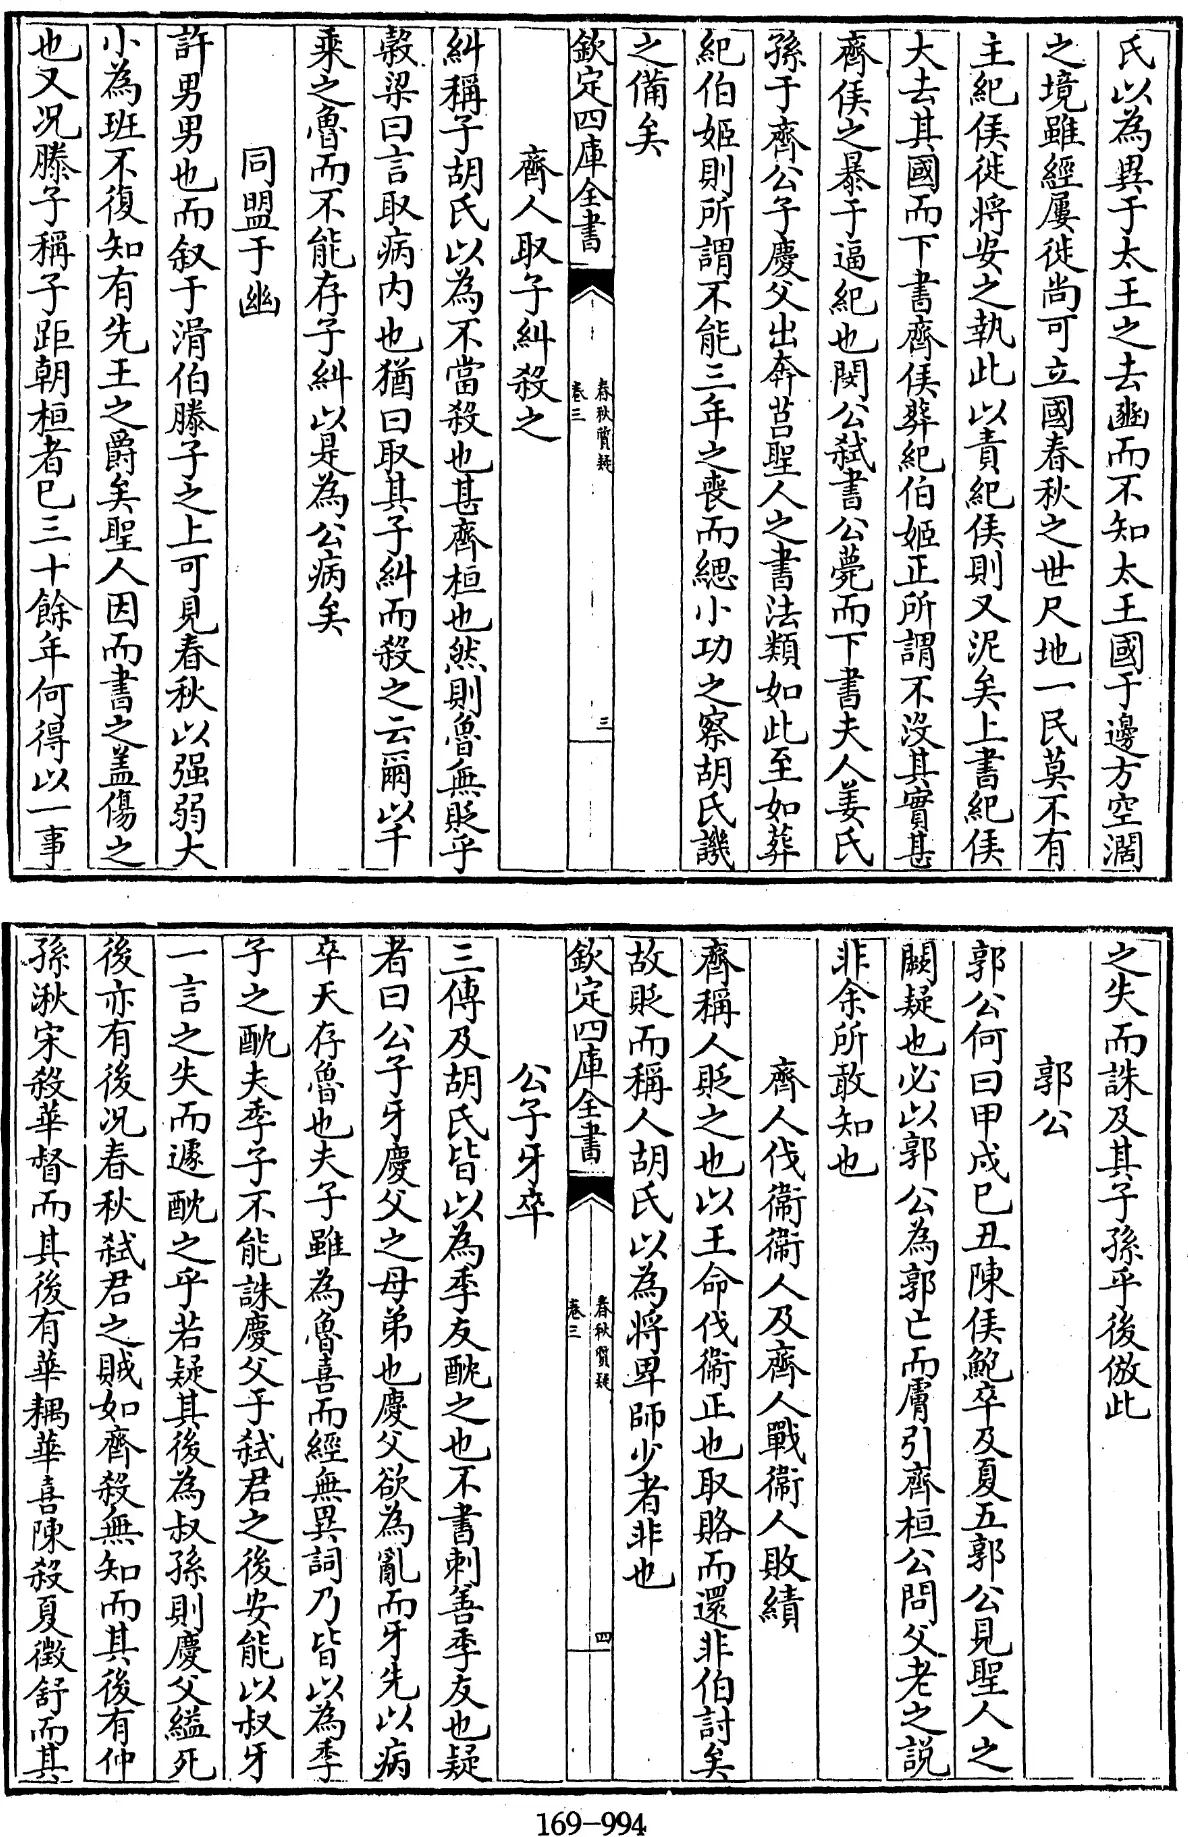 氏以為異于太王之去豳而不知太王國于邊方空濶
之境雖經屢徙尚可立國春秋之世尺地一民莫不有
主紀侯徙將安之執此以責紀侯則又泥矣上書紀侯
大去其國而下書齊侯葬紀伯姬正所謂不沒其實甚
齊侯之暴于逼紀也閔公弑書公薨而下書夫人姜氏
孫于齊公子慶父出奔莒聖人之書法類如此至如葬
紀伯姬則所謂不能三年之喪而緦小功之察胡氏譏
之備矣
欽定四庫全書
春秋質疑
卷三
三
齊人取子糾殺之
糾稱子胡氏以為不當殺也甚齊桓也然則魯無貶乎
穀梁曰言取病内也猶曰取其子糾而殺之云爾以千
乘之魯而不能存子糾以是為公病矣
同盟于幽
許男男也而叙于滑伯滕子之上可見春秋以强弱大
小為班不復知有先王之爵矣聖人因而書之盖傷之
也又况滕子稱子距朝桓者已三十餘年何得以一事
之失而誅及其子孫乎後倣此
郭公
郭公何曰甲戌己丑陳侯鮑卒及夏五郭公見聖人之
闕疑也必以郭公為郭亡而膚引齊桓公問父老之説
非余所敢知也
齊人伐衞衞人及齊人戰衞人敗績
齊稱人貶之也以王命伐衞正也取賂而還非伯討矣
故貶而稱人胡氏以為將卑師少者非也
欽定四庫全書
春秋質疑
卷三
四
公子牙卒
三傳及胡氏皆以為季友酖之也不書刺善季友也疑
者曰公子牙慶父之母弟也慶父欲為亂而牙先以病
卒天存魯也夫子雖為魯喜而經無異詞乃皆以為季
子之酖夫季子不能誅慶父于弑君之後安能以叔牙
一言之失而遽酖之乎若疑其後為叔孫則慶父縊死
後亦有後况春秋弑君之賊如齊殺無知而其後有仲
孫湫宋殺華督而其後有華耦華喜陳殺夏徵舒而其
169-994